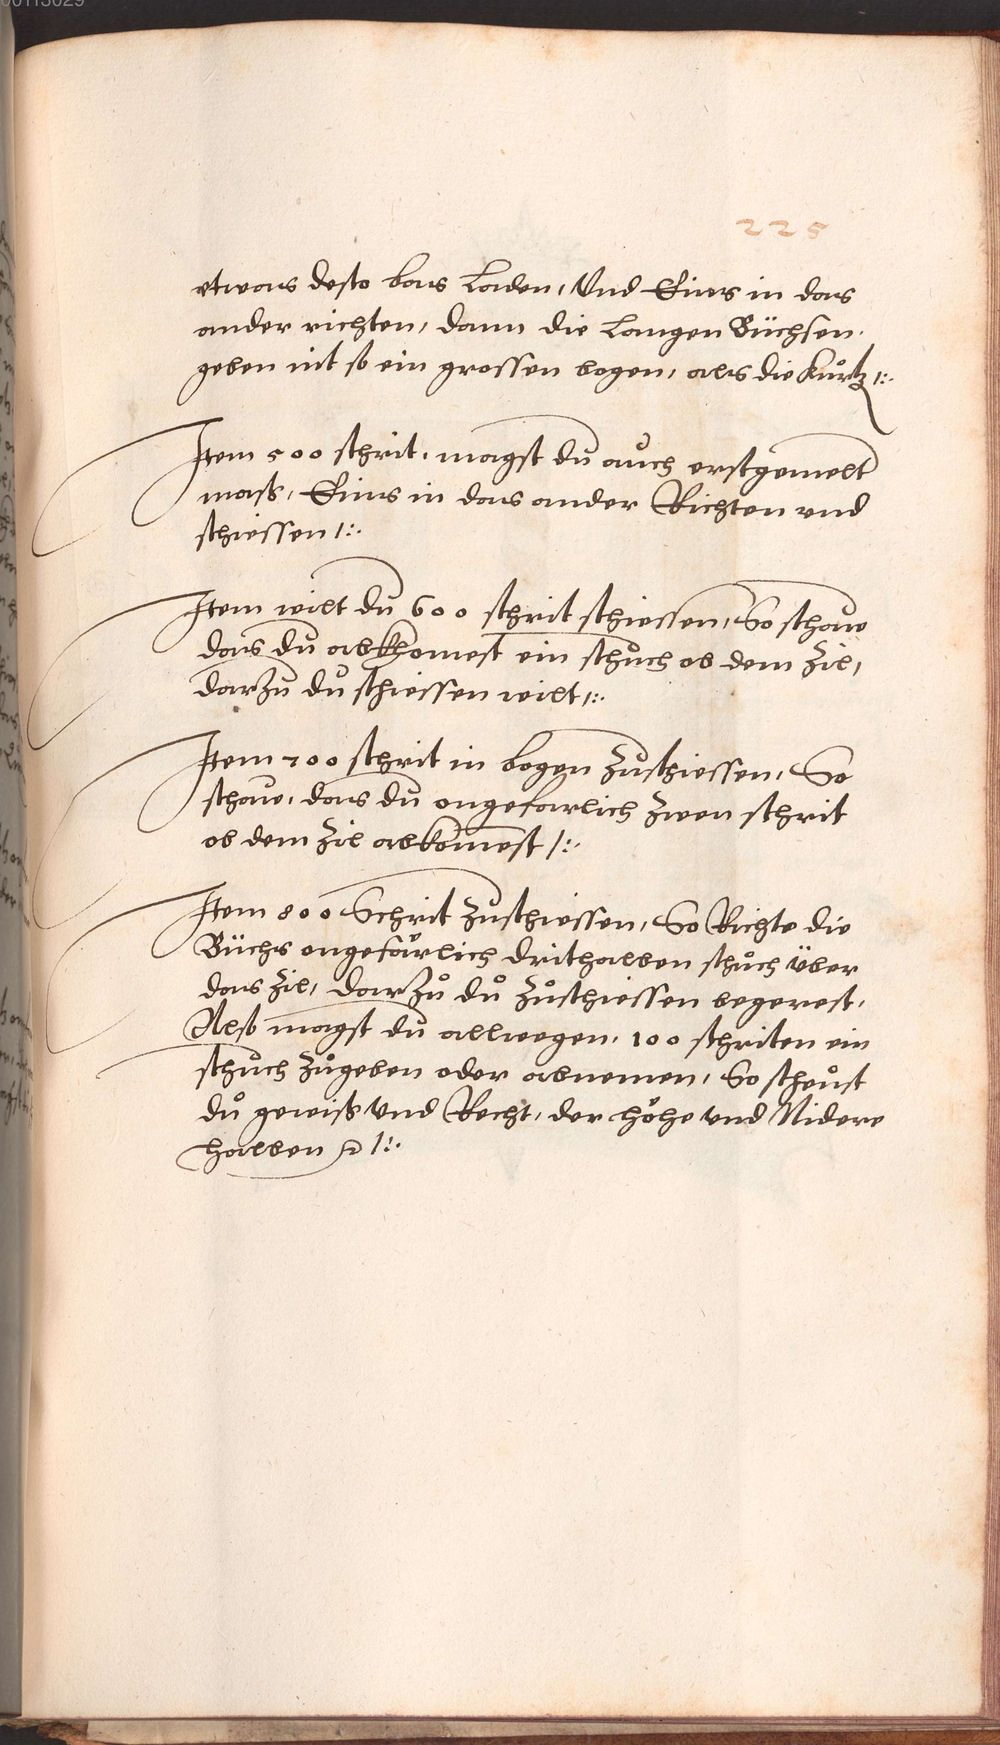 00113029
225
etwas desto bas Laden, Und Eins in das
ander richten, dann die Langen Büchsen.
geben nit so ein grossen bogen, als die Kürtz /:.
Item 500 schrit. magst du auch erstgemelt
mass, Eins in das ander Richten vnd
schiessen /:.
Item wilt du 600 schrit schiessen, So schaue
das du abkhomest ein schuch ob dem Zil,
darzu du schiessen wilt /:.
Item 700 schrit in bogen Zuschiessen, So
schaue, das du ongefarlich Zwen schrit
ob dem Zil abkomest /:.
Item 800 Schrit Zuschiessen, So Richte die
Büchs ongefärlich drithalben schůch über
das Zil, darZů dů Zůschiessen begerest.
Also magst du allwegen. 100 schriten ein
schůch Zůgeben oder abnemen, So scheůst
dů gewiß Und Recht, der höhe vnd Nidere
halben /:.